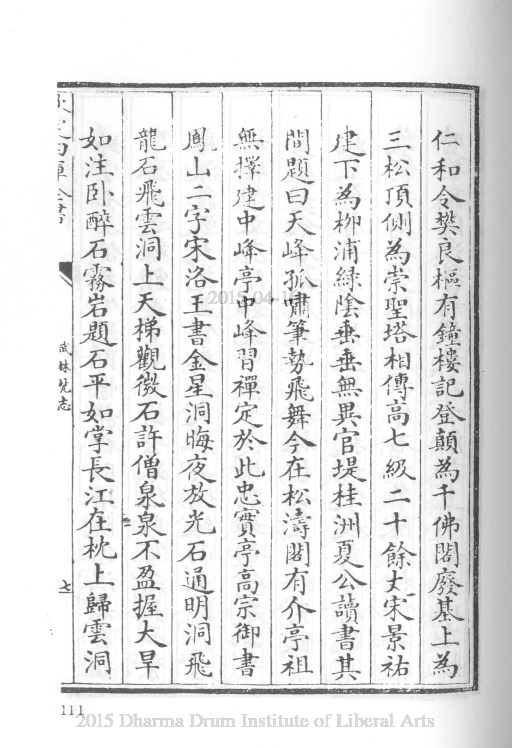 仁和令樊良樞有鐘樓記登顛為千佛閣廢基上為
三松頂側為崇聖塔相傳高七級二十餘丈宋景祐
建下為柳浦綠陰垂垂無異官堤桂洲夏公讀書其
間題曰天峰孤嘯筆勢飛舞今在松濤閣有介亭祖
無擇建中峰亭中峰習禪定於此忠實亭高宗御書
鳳山二字宋洛王書金星洞晦夜放光石通明洞飛
龍石飛雲洞上天梯觀微石許僧泉泉不盈握大旱
如注卧醉石霧岩題石平如掌長江在枕上歸雲洞
武林梵志
七
111
2015 Dharma Drum Institute of Liberal Arts